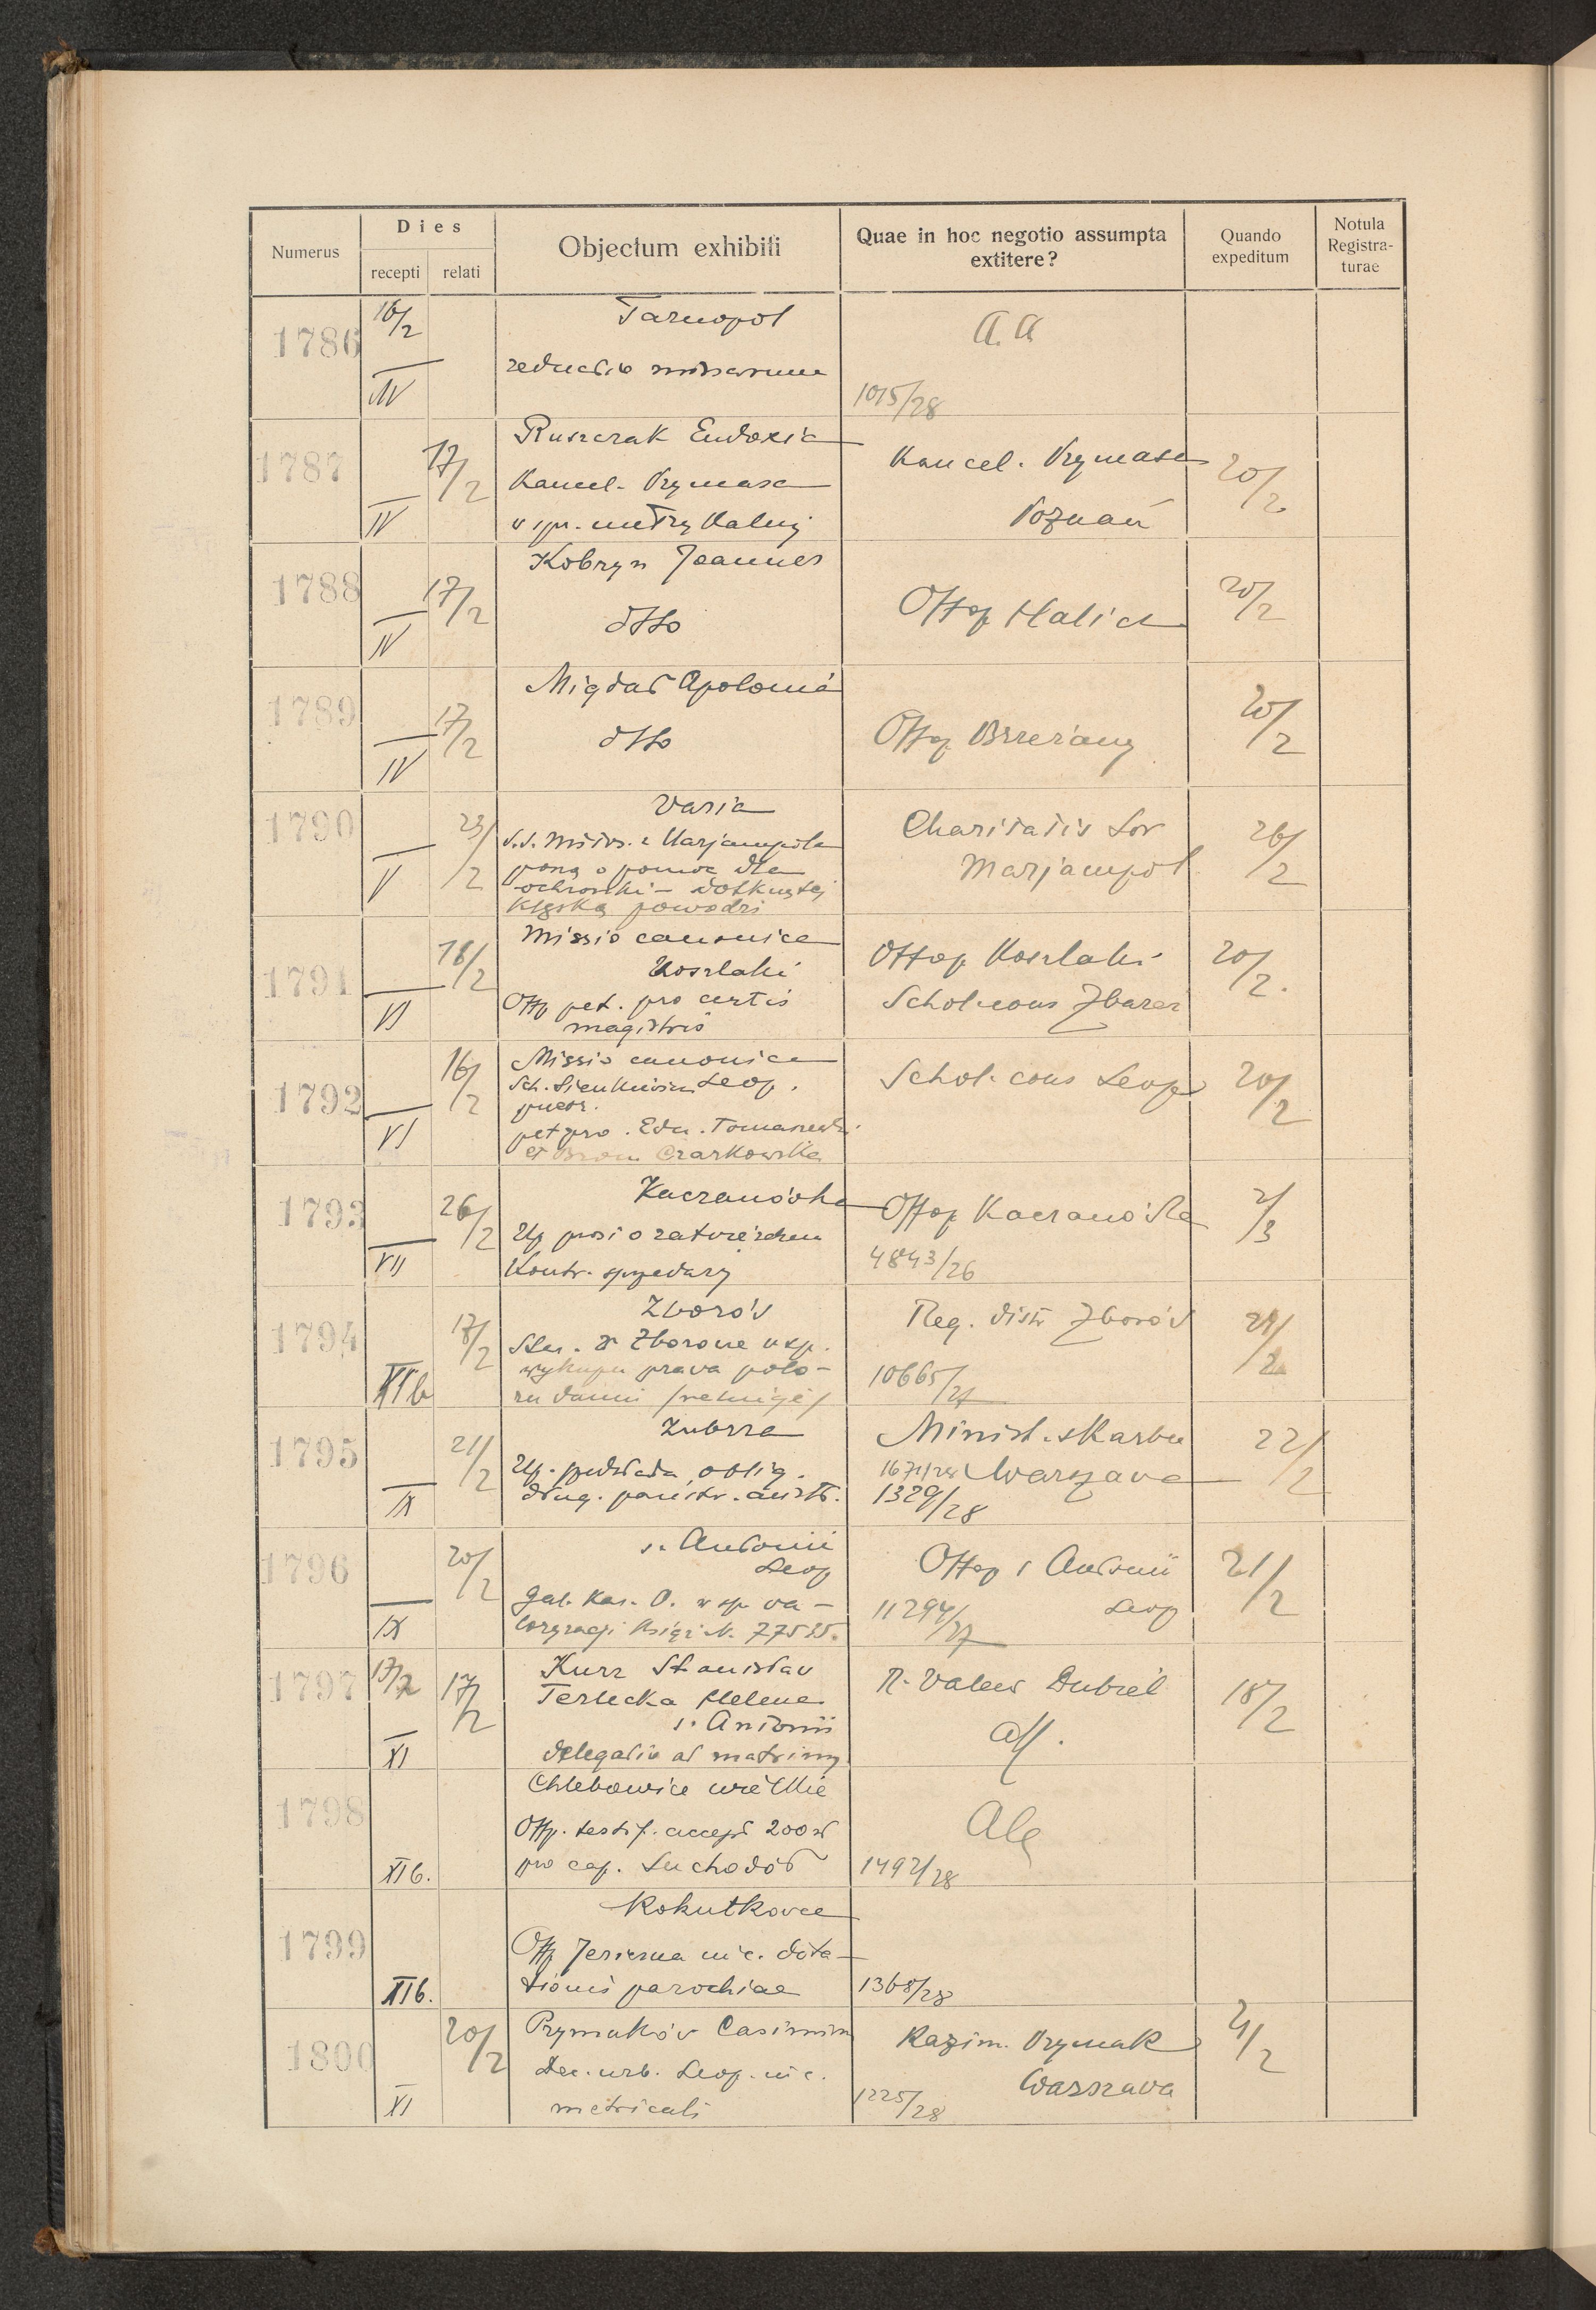 Numerus
Dies
recepti
relati
Objectum exhibiti
Quae in hoc negotio assumpta
extitere?
Quando
expeditum
Notula
Registra-
turae
1786
16/2
IV
Tarnopol
reductio missarum
a.a
1015/28
1787
17/2
IV
Ruszczak Eudoxia
Kancel. Prymasa
w spr. metrykalnej
Kancel. Prymasa
Poznań
20/2
1788
17/2
IV
Kobryn Joannes
dtto
Offop Halicz
20/2
1789
17/2
IV
Migdał Apolonia
dtto
Offop Brzeżany
20/2
1790
23/2
V
Varia
S.S. Miłos. z Marjampola
proszą o pomoc dla
ochronki - dotkniętej
klęską powodzi
Charitatis Sor
Marjampol
26/2
1791
18/2
VI
Missio canonica
Koszlaki
Offp pet. pro certis
magistris
Offop Koszlaki
Schol. cons Zbaraż
20/2.
1792
16/2
VI
Missio canonica
Sch. Sienkiewicza Leop.
puer.
pet pro. Edm. Tomaszewski
et Bron Czarkowska
Schol. cons Leop
20/2
1793
26/2
VII
Kaczanówka
Up prosi o zatwierdzen
Kontr. sprzedaży
Offop Kaczanówka
4843/26
2/3
1794
17/2
XIb
Zborów
Star. w Zborowie w sp.
wykupu prawa poło-
Reg. distr Zborów
10665/27
1795
21/2
IX
Zubrza
Up. przedkłada oblig.
dług. państw. austr.
Minist. Skarbu
Warszawa
1329/28
22/2
1796
20/2
IX
s. Antonii
Leop
Gal. Kas. O. w sp wa-
loryzacji Książ. N. 77525.
Offop s Antonii
Leop
11294/27
21/2
1797
17/2
17/2
XI
Kurz Stanisław
Terlecka Helena
s. Antonii
delegatio ad matrimon
R. Valent Dubiel
all.
18/2
1798
XIb.
Chlebowice wielkie
Offp. testif. accept 200 zł
pro cap. Suchodół
1492/28
1799
XIb.
Kokutkowce
Offp Jezierna nic. dota-
tionis parochiae
1368/28
1800
20/2
XI
Prymaków Casimir
Dec. urb. Leop. nic.
metricali
Kazim. Prymak
Warszawa
1225/28
21/2